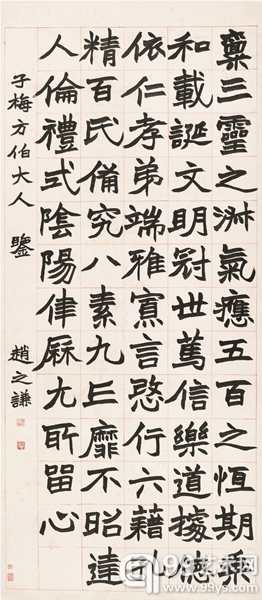 稟三靈之淑氣應五百之恆期乘
和載誕文明冠世篤信樂道據德
依仁孝弟端雅寡言愨行六藉孔
精百氏備究八素九丘靡不昭達
人倫禮式陰陽律厤尤所留心
子梅方伯大人鑒 趙之謙
99艺术网
www.99ys.com